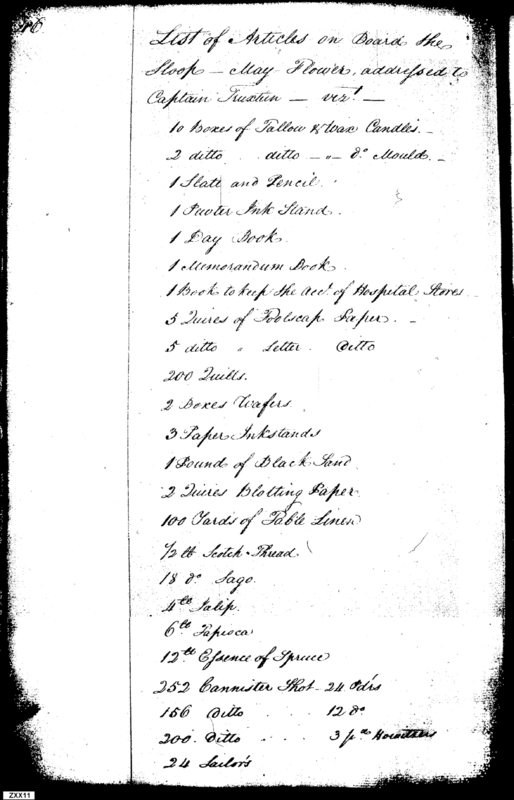 46
List of Articles on Board the
Sloop – May Flower, addressed to
Captain Truxtun – vizt. –
10 Boxes of Tallow & Wax Candles. –
2 ditto . ditto – " – do. Mould. –
1 Slate and Pencil.
1 Pewter Ink Stand.
1 Day Book.
1 Memorandum Book.
1 Book to keep the Acct. of Hospital Stores
5 Quires of Foolscap Paper. –
5 ditto " Letter. Ditto
200 Quills.
2 Boxes Wafers.
3 Paper Inkstands
1 Pound of Black Sand
2 Quires Blotting Paper
100 Yards of Table Linen
1/2 lb Scotch Thread
18 do. Sago.
4 lb Jalip.
6 lb. Tapioca
12 lb. Essence of Spruce
252 Cannister Shot – 24 Pdrs
156 Ditto . . . 12 do
200. Ditto . . . 3 pr. Howitzers
24 Sailor's
ZXX11